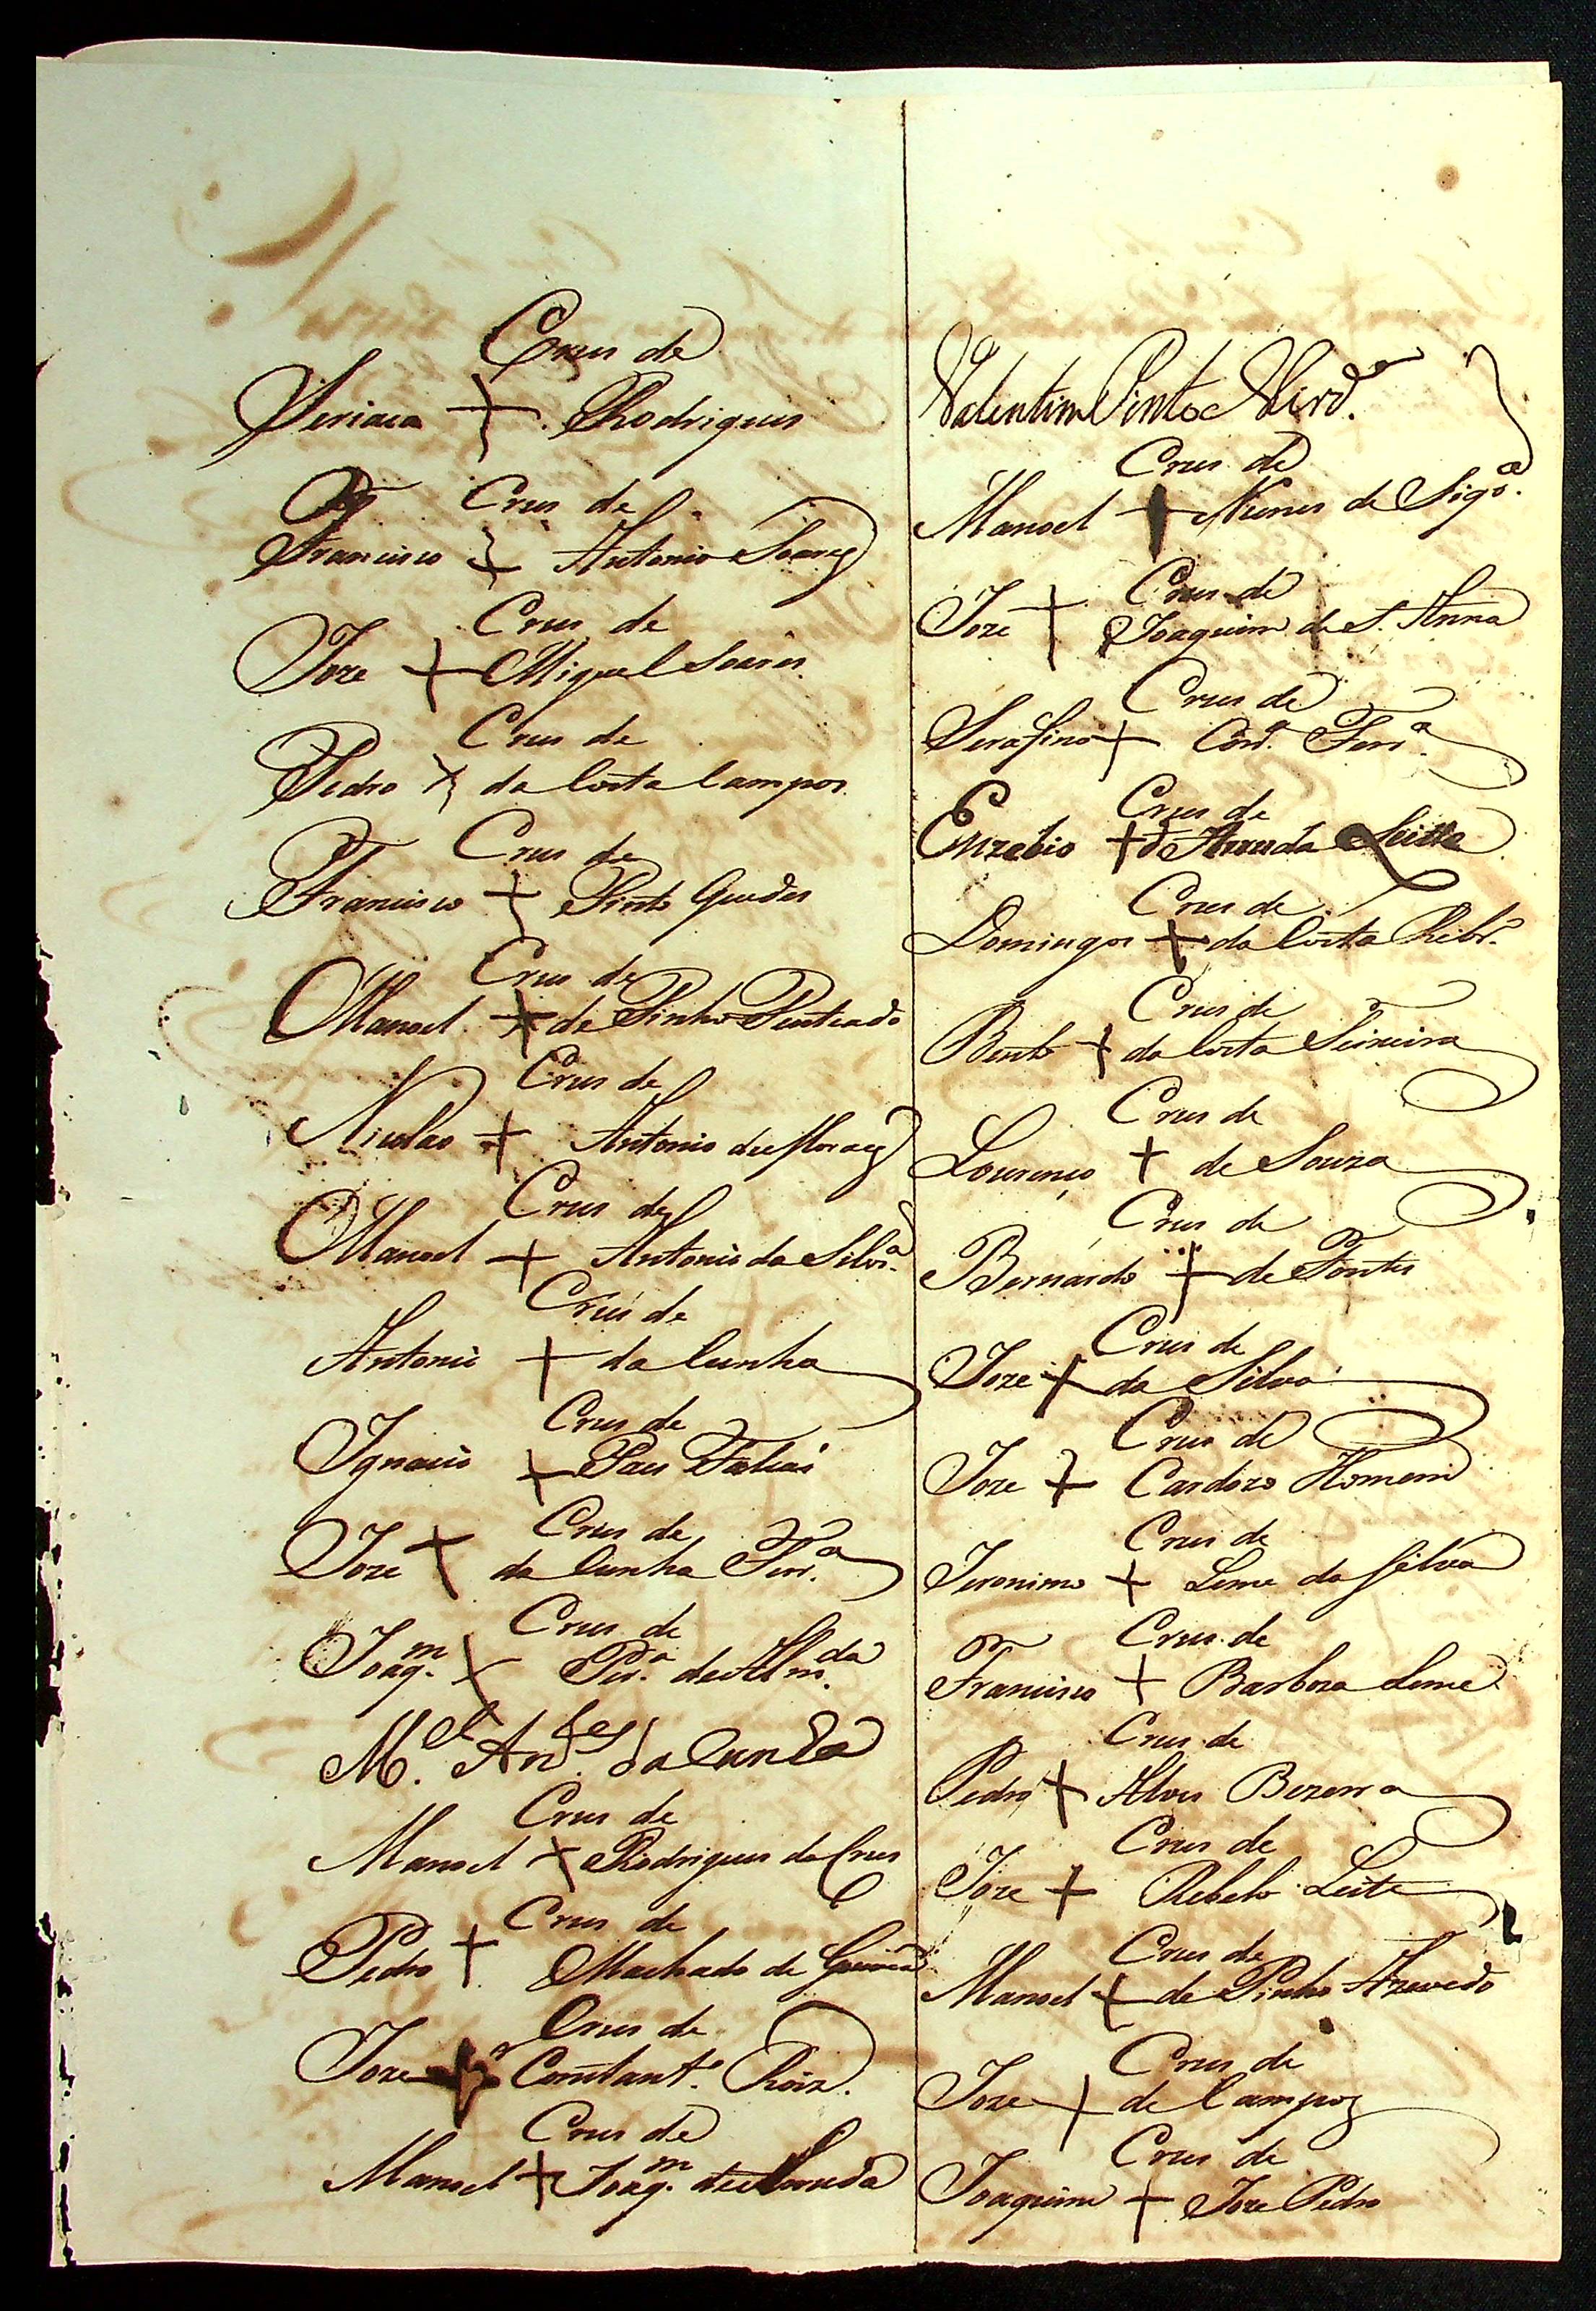 Crus de
Siriaca + Rodrigues
Crus de
Francisco + Antonio Soares
Crus de
Joze + Miguel Soares
Crus de
Pedro + da Costa Campos
Crus de
Francisco + Pinto Guedes
Crus de
Manoel + de Pinho Penteado
Crus de
Niculao + Antonio de Moraes
Crus de
Manoel + Antonio da Silvr.ª
Crus de
Antonio + da Cunha
Crus de
Ignacio + Paes
Crus de
Joze + da Cunha Ferr.ª
Crus de
Joaq.m + Per.ª de Alm.da
M.el An.des da Cunha
Crus de
Manoel + Rodrigues da Crus
Crus de
Pedro + Machado de
Crus de
Joze + Constant.º Roiz.
Crus de
Manoel + Joaq.m de Arruda
Valentim Pinto
Crus de
Manoel + Nunes de Siq.ª
Crus de
Joze + Joaquim de S. Anna
Crus de
Serafino + Cord.º Ferr.ª
Crus de
Euzebio + de Arruda Leitte
Crus de
Domingos + da Costa Ribr.º
Crus de
Bento + da Costa Siqueira
Crus de
Lourenço + de Souza
Crus de
Bernardo + de Fontes
Crus de
Joze + da Silva
Crus de
Joze + Cardozo Homem
Crus de
Jeronimo + Leme da Silva
Crus de
Francisco + Barboza Leme
Crus de
Pedro + Alves Bezerra
Crus de
Joze + Rebelo Leite
Crus de
Manoel + de Pinho Azevedo
Crus de
Joze + de Campos
Crus de
Joaquim + Joze Pedro